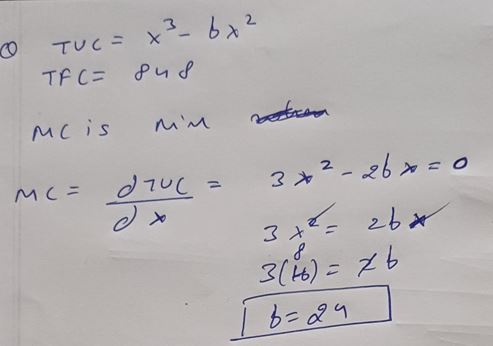 ① TVC = x³ - bx²
TFC = 848
MC is min
MC = dTVC/dx = 3x² - 2bx = 0
3x² = 2bx
8
3(16) = 2b
b = 24